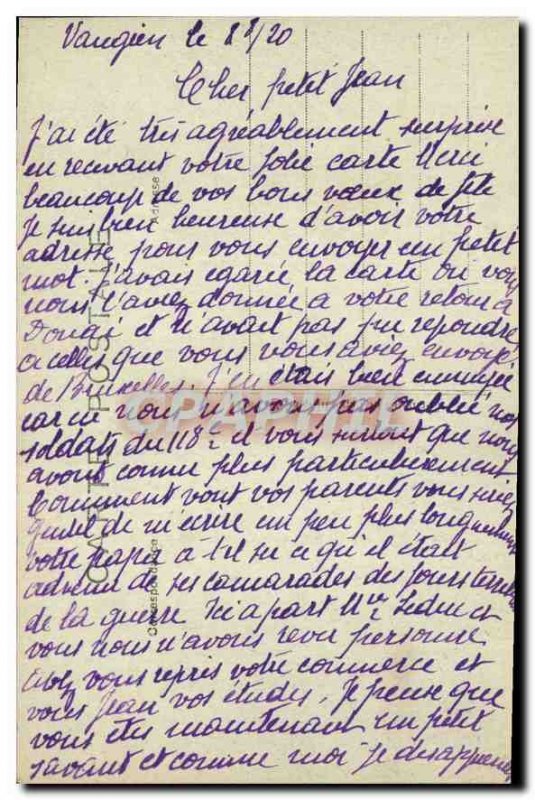 Vaugien le 8 8/20
Cher petit Jean
J'ai été très agréablement surprise
en recevant votre jolie carte Merci
beaucoup de vos bons voeux de fête
Je suis bien heureuse d'avoir votre
adresse pour vous envoyer un petit
mot. J'avais egarée la carte ou vous
nous l'aviez donnée a votre retour a
Douai et n'avait pas pu repondre
a celles que vous vous aviez envoyé
de Bruxelles. J'en étais bien ennuyée
car ici nous n'avons pas oublié nos
soldats du 118e il vous surtout que nous
avons connu plus particulièrement
Comment vont vos parents vous seriez
gentil de m'écrire un peu plus longuement
votre papa a-t-il su ce qu'il était
advenu de ses camarades des jours terribles
de la guerre Ici apart Mr Leduc et
vous nous n'avons revu personne
Avez vous repris votre commerce et
vous Jean vos études. Je pense que
vous êtes maintenant un petit
savant et comme moi je desapprends
CARTE POSTALE
Correspondance
Adresse
CPAPHIL